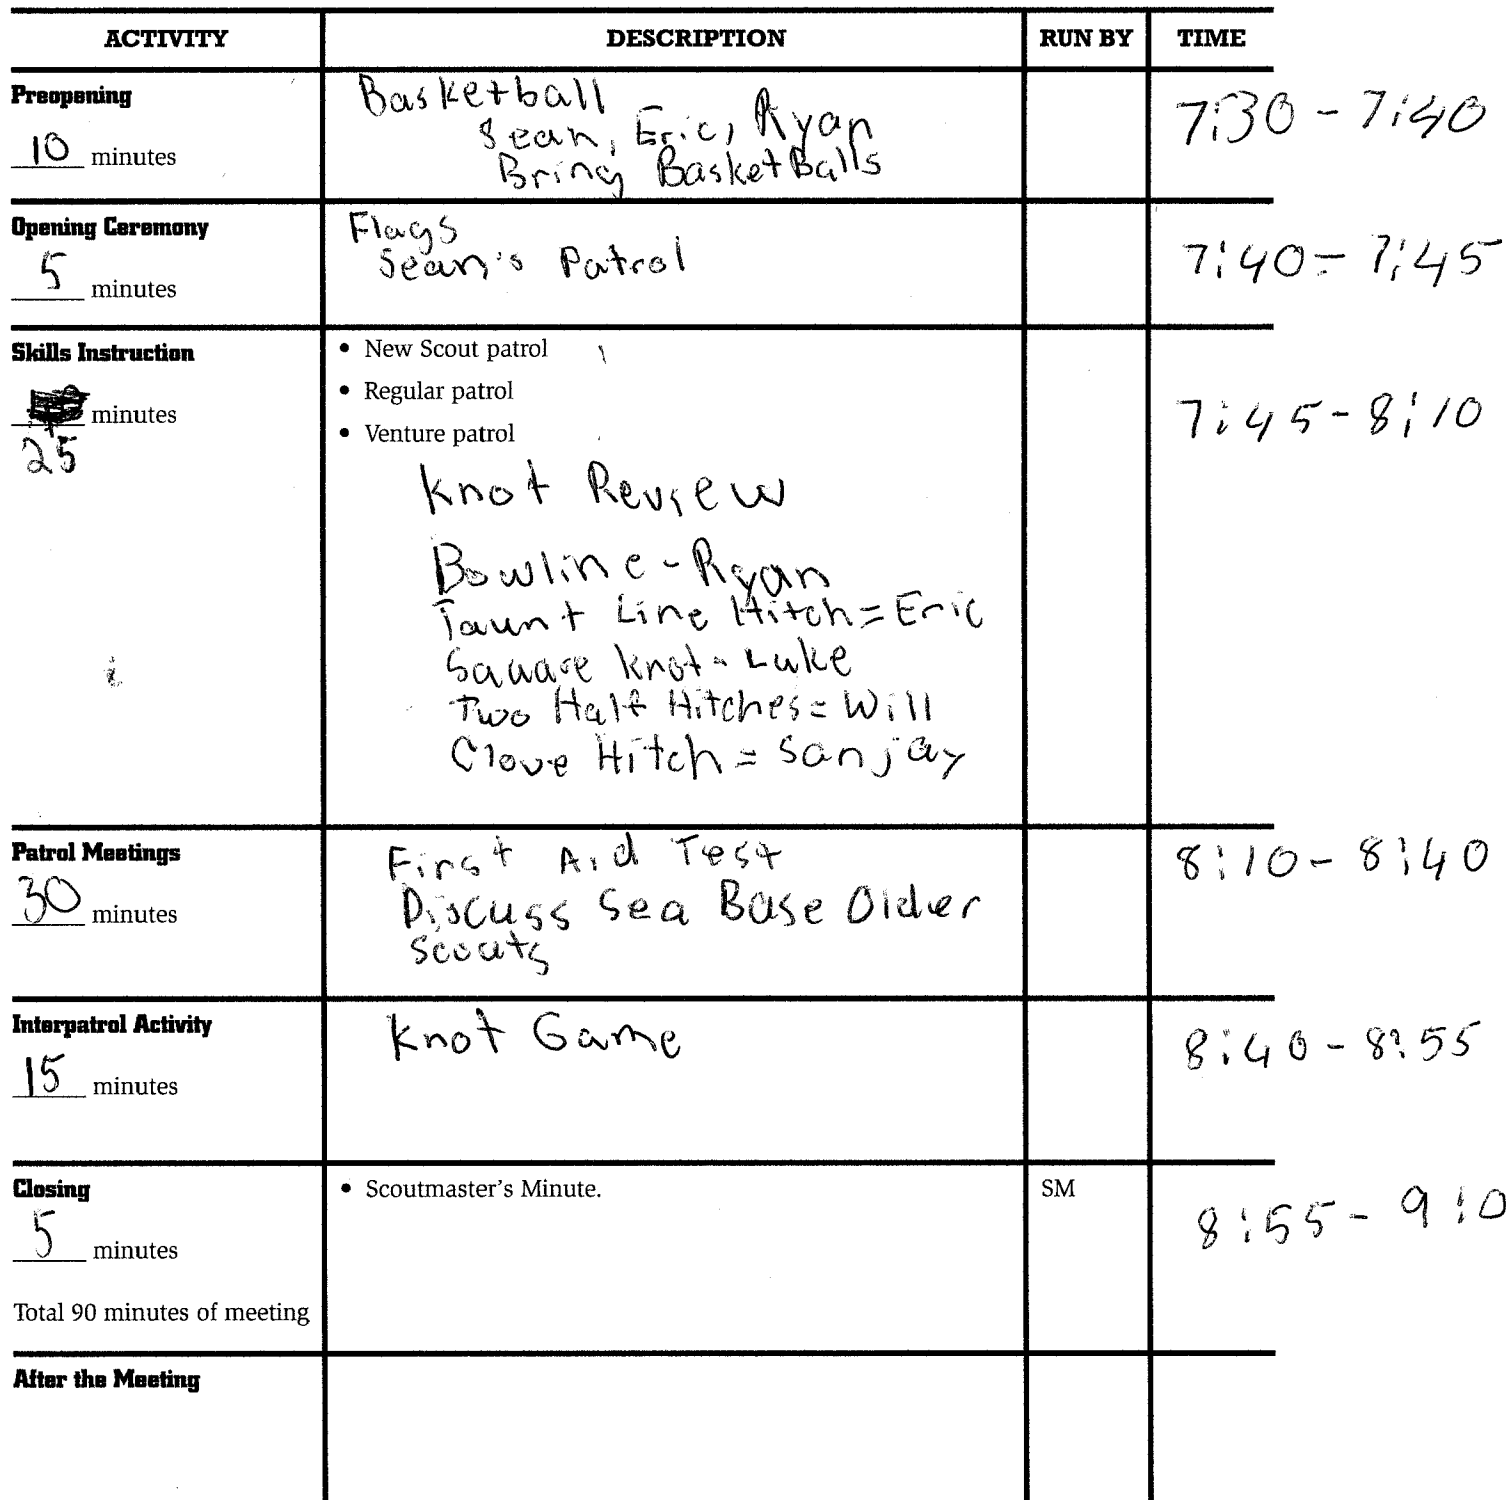 ACTIVITY DESCRIPTION RUN BY TIME
Preopening
10 minutes
Basketball
Sean, Eric, Ryan
Bring BasketBalls
7:30 - 7:40
Opening Ceremony
5 minutes
Flags
Sean's Patrol
7:40 - 7:45
Skills Instruction
minutes
25
• New Scout patrol
• Regular patrol
• Venture patrol
Knot Review
Bowline - Ryan
Taunt Line Hitch = Eric
Square Knot - Luke
Two Half Hitches = Will
Clove Hitch = Sanjay
7:45 - 8:10
Patrol Meetings
30 minutes
First Aid Test
Discuss Sea Base Older
Scouts
8:10 - 8:40
Interpatrol Activity
15 minutes
Knot Game
8:40 - 8:55
Closing
5 minutes
Total 90 minutes of meeting
• Scoutmaster's Minute.
SM
8:55 - 9:0
After the Meeting